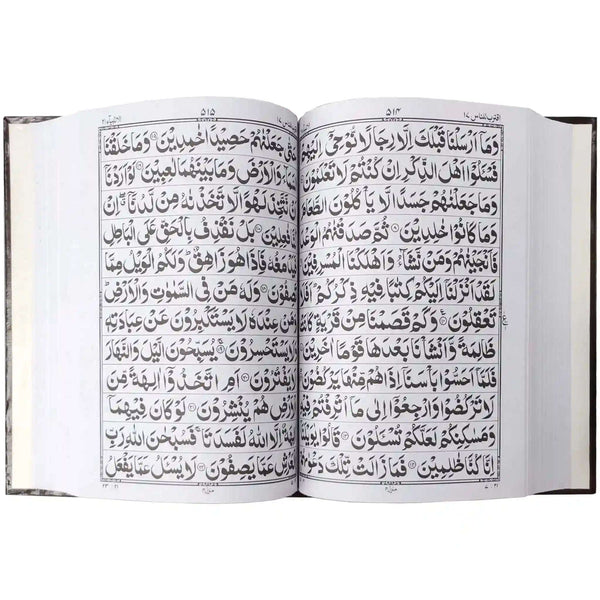 اقترب للناس ١٧
٥١٤
وَمَآ اَرْسَلْنَا قَبْلَكَ اِلَّا رِجَالًا نُّوْحِيْٓ اِلَيْهِمْ
فَسْـَٔلُوْٓا اَهْلَ الذِّكْرِ اِنْ كُنْتُمْ لَا تَعْلَمُوْنَ
وَمَا جَعَلْنٰهُمْ جَسَدًا لَّا يَاْكُلُوْنَ
وَمَا كَانُوْا خٰلِدِيْنَ ۝٨ ثُمَّ صَدَقْنٰهُمُ
فَاَنْجَيْنٰهُمْ وَمَنْ نَّشَآءُ وَاَهْلَكْنَا الْمُسْرِفِيْنَ
لَقَدْ اَنْزَلْنَآ اِلَيْكُمْ كِتٰبًا فِيْهِ ذِكْرُكُمْ
تَعْقِلُوْنَ ۝١٠ وَكَمْ قَصَمْنَا مِنْ قَرْيَةٍ
ظَالِمَةً وَّاَنْشَاْنَا بَعْدَهَا قَوْمًا اٰخَرِيْنَ
فَلَمَّآ اَحَسُّوْا بَاْسَنَآ اِذَا هُمْ مِّنْهَا يَرْكُضُوْنَ
لَا تَرْكُضُوْا وَارْجِعُوْٓا اِلٰى مَآ اُتْرِفْتُمْ
وَمَسٰكِنِكُمْ لَعَلَّكُمْ تُسْـَٔلُوْنَ ۝١٣ قَالُوْا
اِنَّا كُنَّا ظٰلِمِيْنَ ۝١٤ فَمَا زَالَتْ تِّلْكَ
منزل ٤
٥١٥
الانبيآء ٢١
حَتّٰى جَعَلْنٰهُمْ حَصِيْدًا خٰمِدِيْنَ ۝١٥ وَمَا خَلَقْنَا
وَالْاَرْضَ وَمَا بَيْنَهُمَا لٰعِبِيْنَ ۝١٦ لَوْ اَرَدْنَآ
اَنْ نَّتَّخِذَ لَهْوًا لَّاتَّخَذْنٰهُ مِنْ لَّدُنَّآ ۖ اِنْ
فٰعِلِيْنَ ۝١٧ بَلْ نَقْذِفُ بِالْحَقِّ عَلَى الْبَاطِلِ
فَيَدْمَغُهٗ فَاِذَا هُوَ زَاهِقٌ ۭ وَلَكُمُ الْوَيْلُ مِمَّا
تَصِفُوْنَ ۝١٨ وَلَهٗ مَنْ فِي السَّمٰوٰتِ وَالْاَرْضِ ۭ
وَمَنْ عِنْدَهٗ لَا يَسْتَكْبِرُوْنَ عَنْ عِبَادَتِهٖ
وَلَا يَسْتَحْسِرُوْنَ ۝١٩ يُسَبِّحُوْنَ الَّيْلَ وَالنَّهَارَ
لَا يَفْتُرُوْنَ ۝٢٠ اَمِ اتَّخَذُوْٓا اٰلِهَةً مِّنَ
الْاَرْضِ هُمْ يُنْشِرُوْنَ ۝٢١ لَوْ كَانَ فِيْهِمَآ
اٰلِهَةٌ اِلَّا اللّٰهُ لَفَسَدَتَا ۚ فَسُبْحٰنَ اللّٰهِ رَبِّ
الْعَرْشِ عَمَّا يَصِفُوْنَ ۝٢٢ لَا يُسْـَٔلُ عَمَّا يَفْعَلُ
منزل ٤